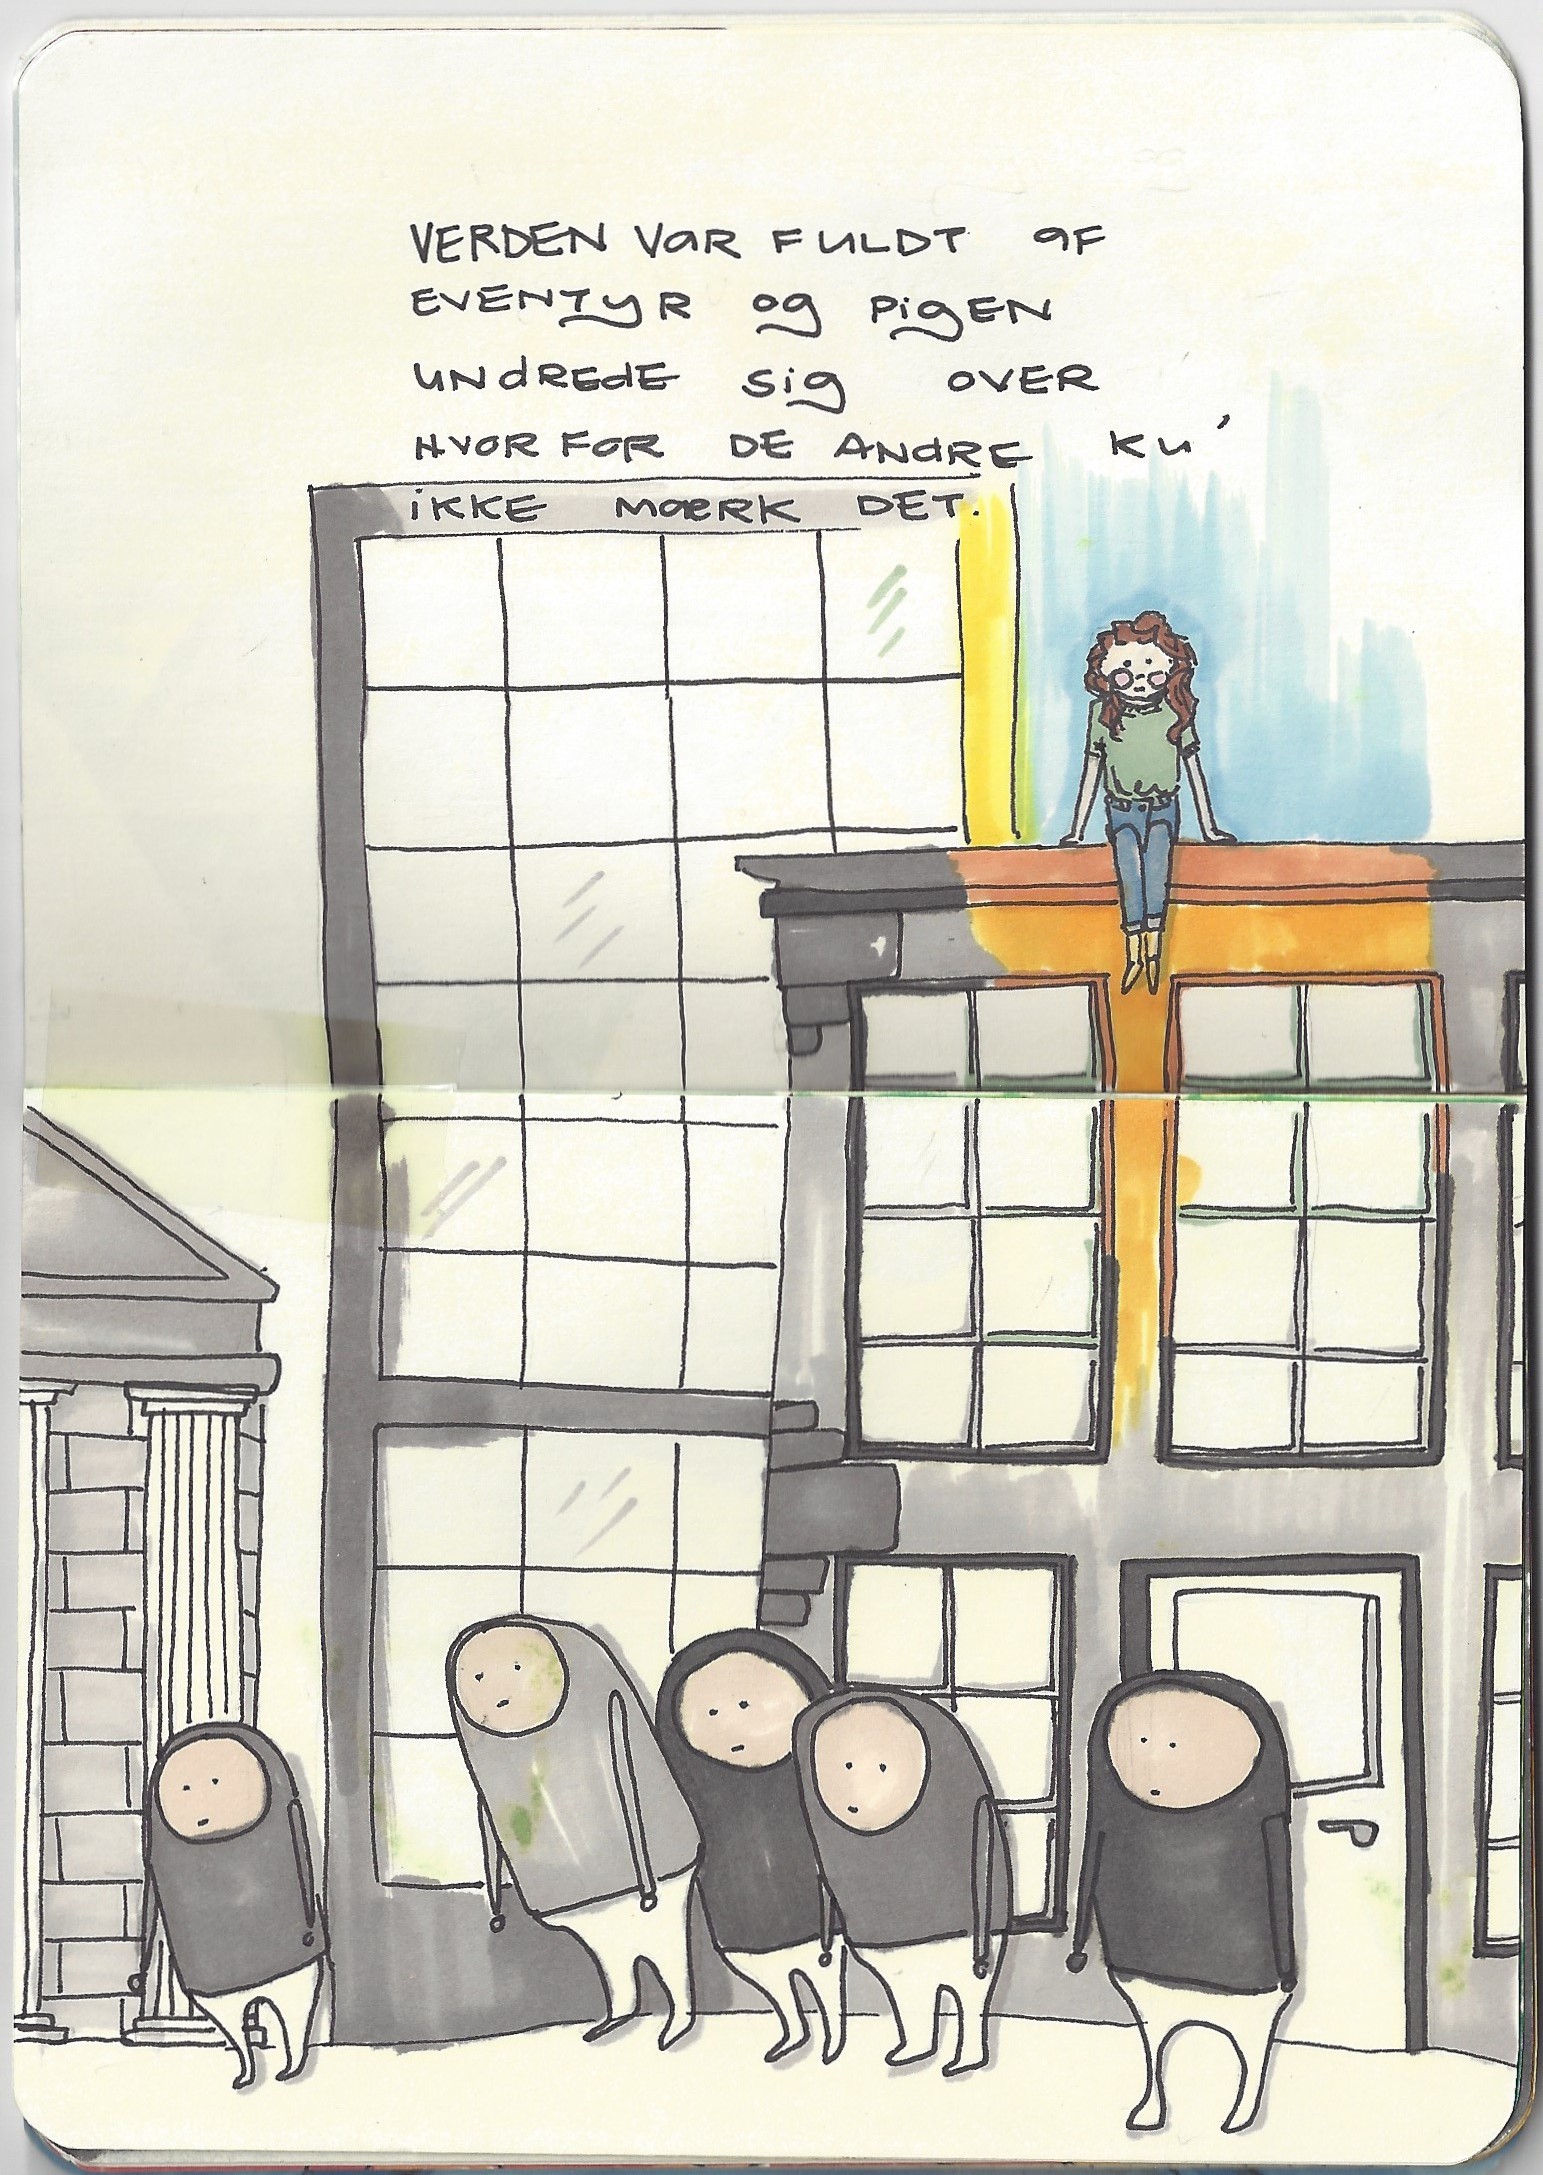 VERDEN VAR FULDT AF
EVENTYR OG PIGEN
UNDREDE SIG OVER
HVORFOR DE ANDRE KU'
IKKE MÆRK DET.